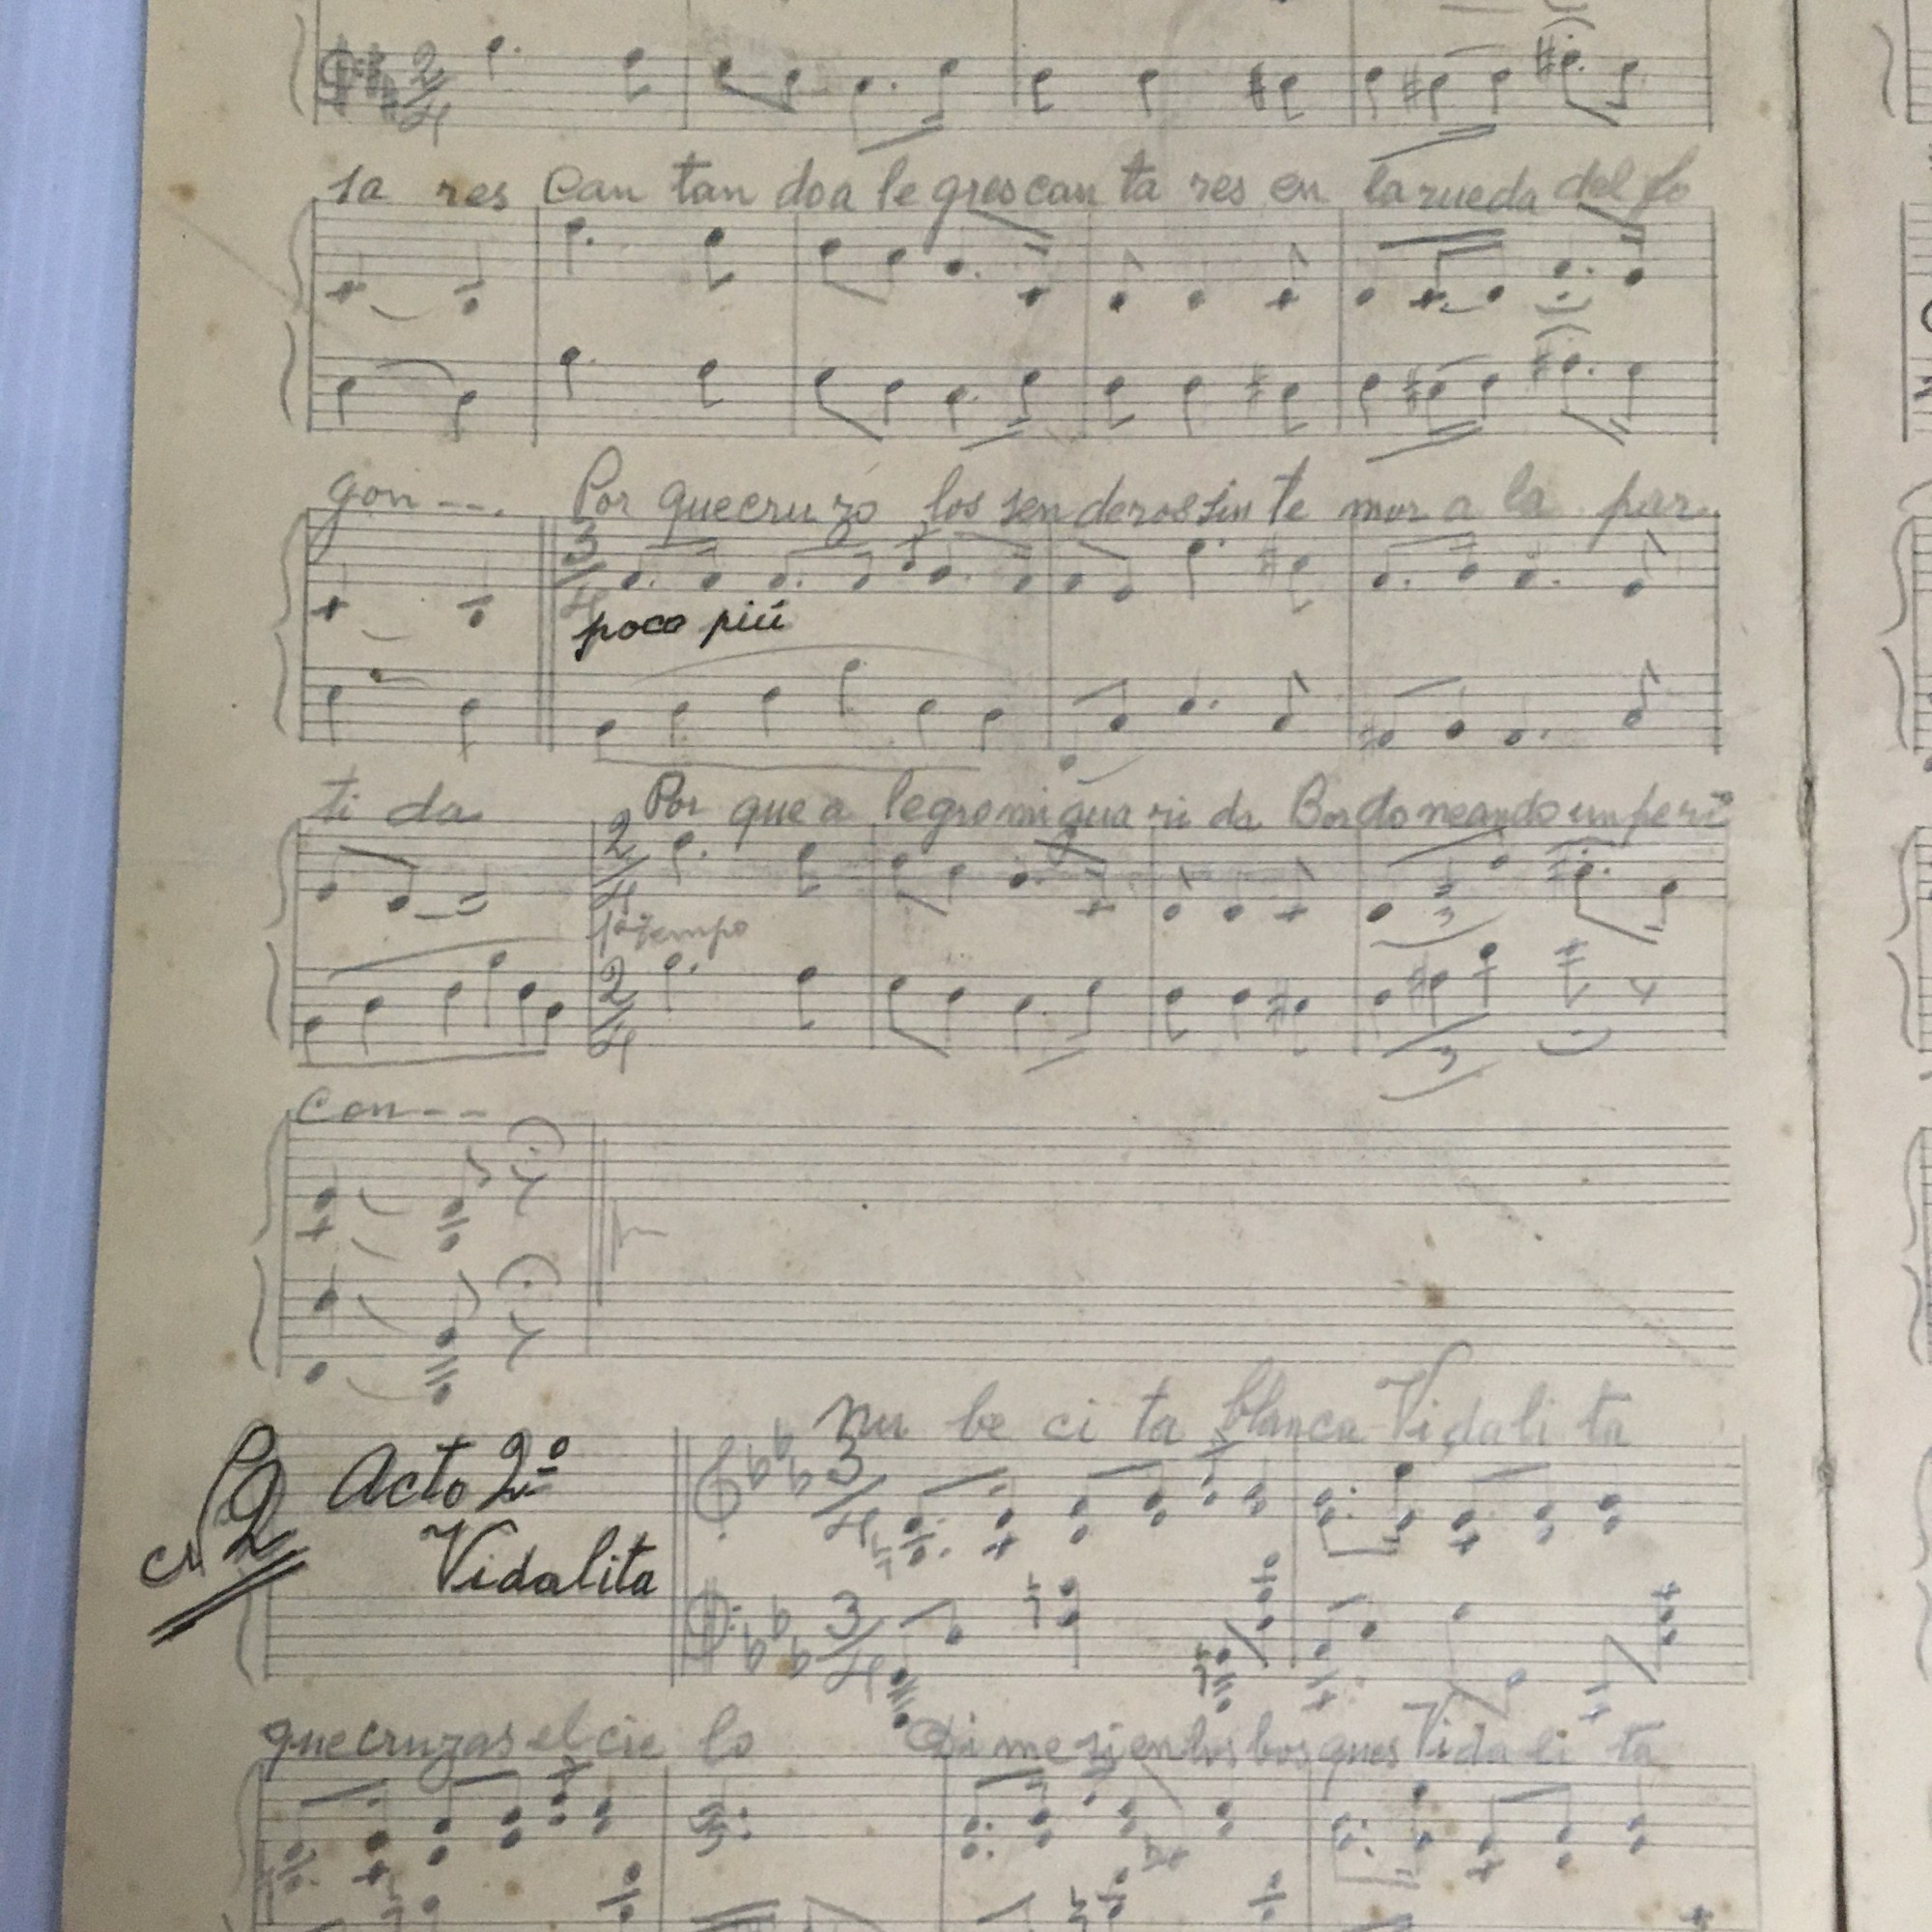 2/4
sa res Can tan do a le gres can ta res en la rueda del fo
gon ---. Por que cru zo los sen deros sin te mor a la par
3/4
poco più
ti da Por que a legro mi gua ri da Bordoneando un peri
2/4
1º tempo
2/4
3
3
con --
nu be ci ta blanca Vidali ta
Nº 2 Acto 2º
3/4
Vidalita
3/4
que cruzas el cie lo Di me si en los bosques Vida li ta